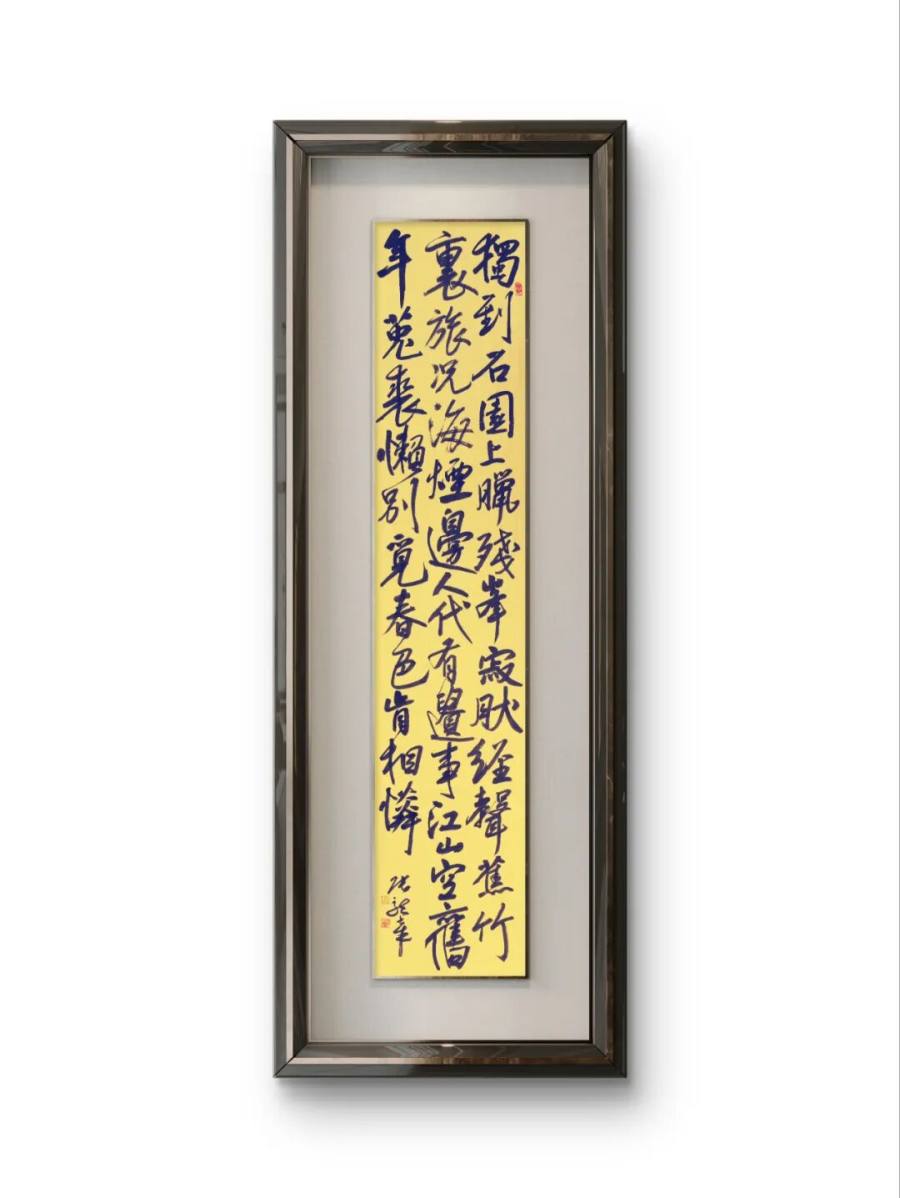 獨到石園上臘殘峯寂肰經聲蕉竹
裏旅況海煙邊人代有遺事江山空舊
年菟裘懶別覓春色肯相憐